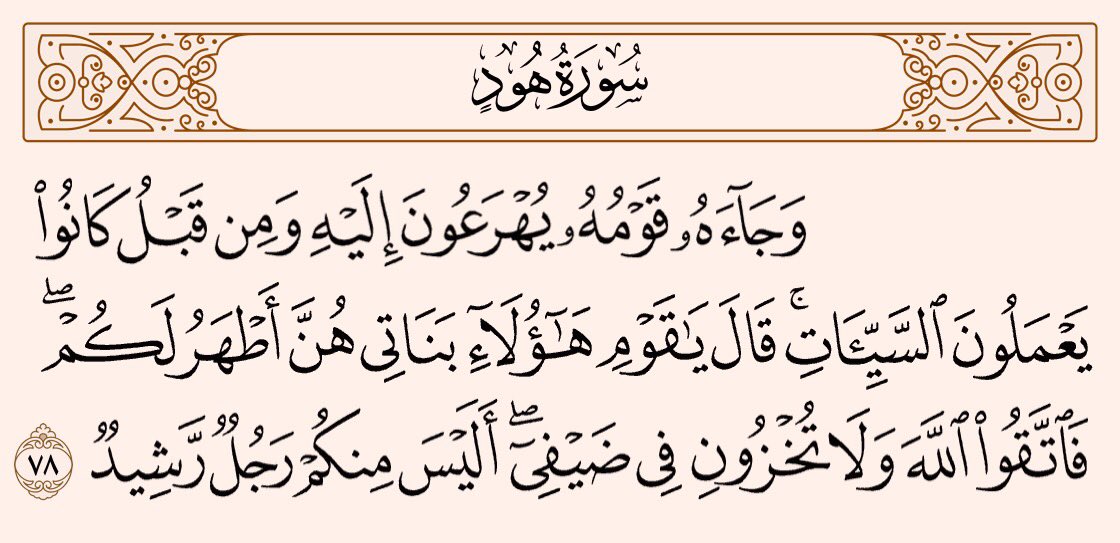 سُورَةُ هُودٍ
وَجَآءَهُۥ قَوْمُهُۥ يُهْرَعُونَ إِلَيْهِ وَمِن قَبْلُ كَانُوا۟
يَعْمَلُونَ ٱلسَّيِّـَٔاتِ ۚ قَالَ يَـٰقَوْمِ هَـٰٓؤُلَآءِ بَنَاتِى هُنَّ أَطْهَرُ لَكُمْ ۖ
فَٱتَّقُوا۟ ٱللَّهَ وَلَا تُخْزُونِ فِى ضَيْفِىٓ ۖ أَلَيْسَ مِنكُمْ رَجُلٌ رَّشِيدٌ ٧٨